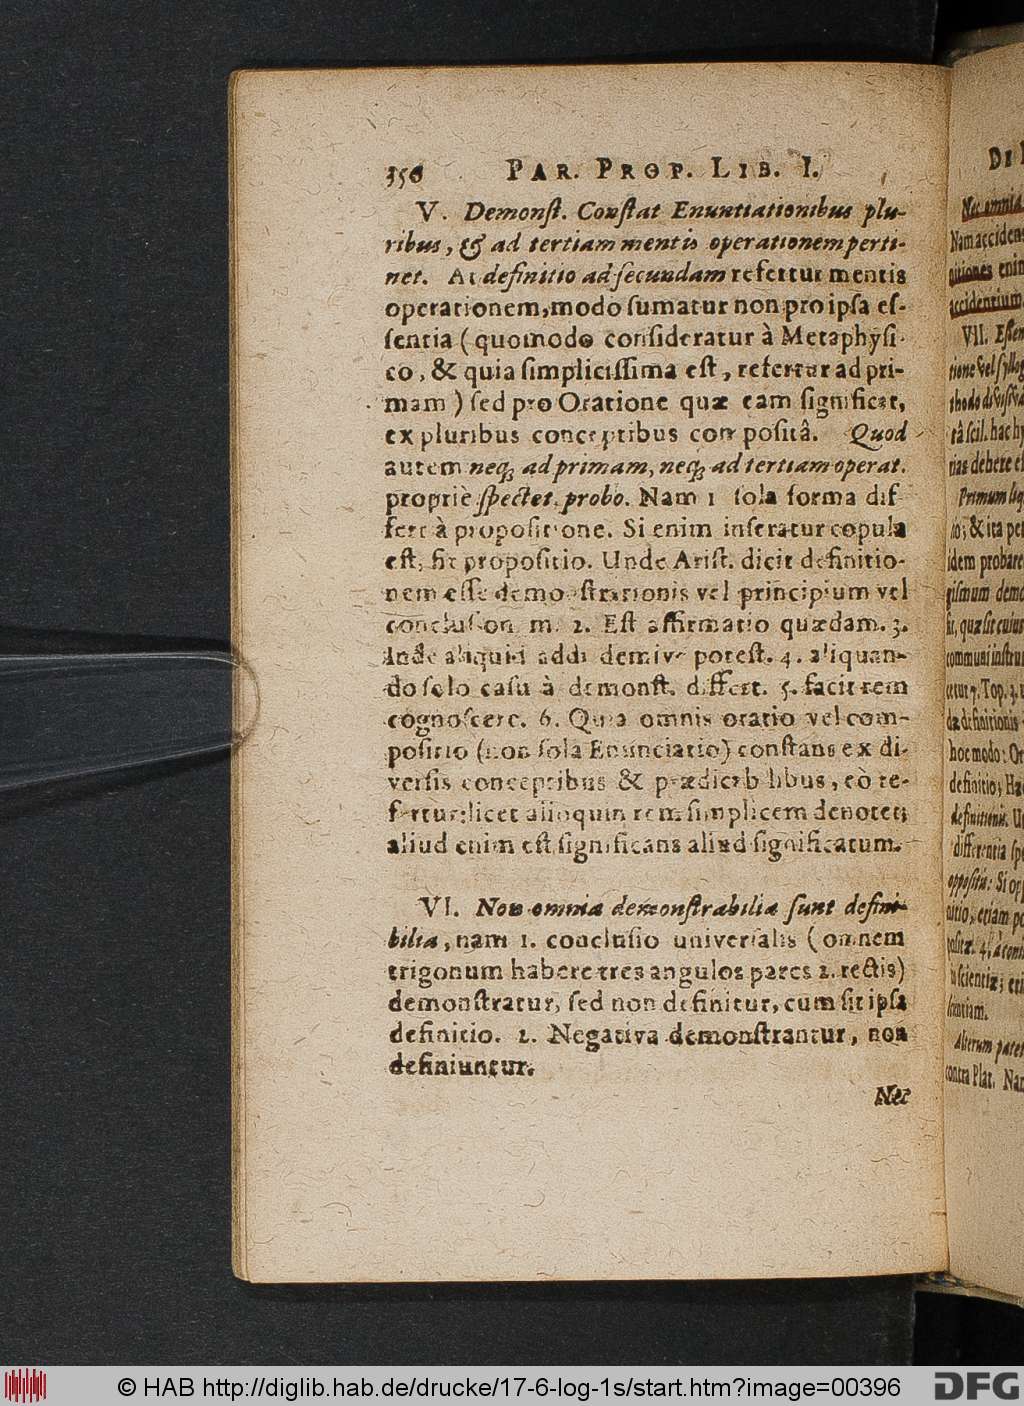 356 PAR. PROP. LIB. I.
V. Demonſt. Conſtat Enuntiationibus plu-
ribus, & ad tertiam mentis operationem perti-
net. At definitio ad ſecundam refertur mentis
operationem, modo ſumatur non pro ipſa eſ-
ſentia (quomodo conſideratur à Metaphyſi-
co, & quia ſimpliciſſima eſt, refertur ad pri-
mam) ſed pro Oratione quæ eam ſignificat,
ex pluribus conceptibus compoſitâ. Quod
autem neq; ad primam, neq; ad tertiam operat.
propriè ſpectet, probo. Nam 1 ſola forma dif
fert à propoſitione. Si enim inferatur copula
eſt, fit propoſitio. Unde Ariſt. dicit definitio-
nem eſſe demonſtrationis vel principium vel
concluſionem. 2. Eſt affirmatio quædam. 3.
Inde aliquid addi demive poteſt. 4. aliquan-
do ſolo caſu à demonſt. differt. 5. facit rem
cognoſcere. 6. Quia omnis oratio vel com-
poſitio (non ſola Enunciatio) conſtans ex di-
verſis conceptibus & prædicabilibus, eò re-
fertur: licet alioquin rem ſimplicem denotet;
aliud enim eſt ſignificans aliud ſignificatum.
VI. Non omnia demonſtrabilia ſunt defini-
bilia, nam 1. concluſio univerſalis (omnem
trigonum habere tres angulos pares 2. rectis)
demonſtratur, ſed non definitur, cum ſit ipſa
definitio. 2. Negativa demonſtrantur, non
definiuntur.
Nec
DE
Nec omnia
Nam acciden
enim
accidentium
VII. Eſſen
tione vel ſyllog
thodo diviſiva
tâ ſcil. hac hy
rias debere eſ
Primum liq
io; & ita pet
idem probare
giſmum demo
ſit, quæ ſit cuius
communi inſtru
cetur 7. Top. 3.
da definitionis
hoc modo: 
definitio; Hæ
definitionis. U
differentia ſpe
oppoſitis: Si opp
nitio, etiam po
4. à cont
ſcientiæ; eti
ſcentiam.
Alterum patet
contra Plat. Nam
© HAB http://diglib.hab.de/drucke/17-6-log-1s/start.htm?image=00396 DFG